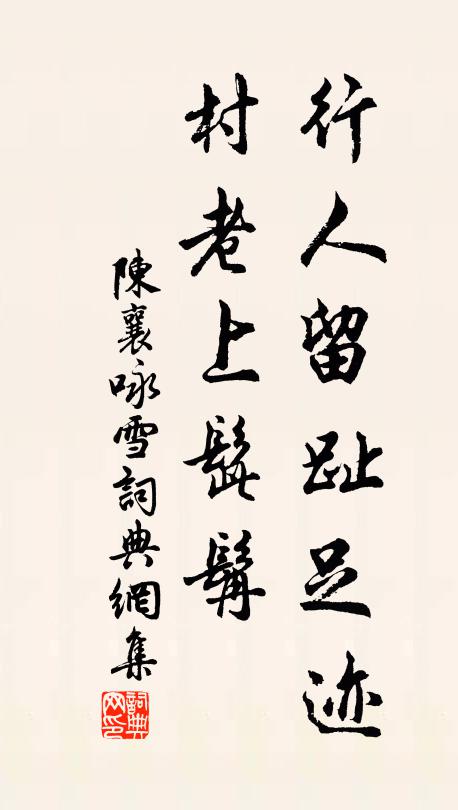 行人留趾足迹
村老上髭髯
陳襄咏雪詞典網集
詞典网印